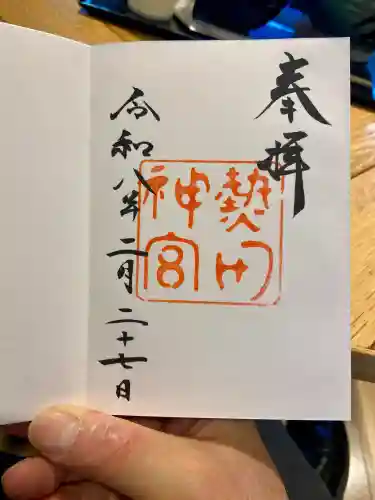 奉拝
熱田
神宮
令和八年二月二十七日